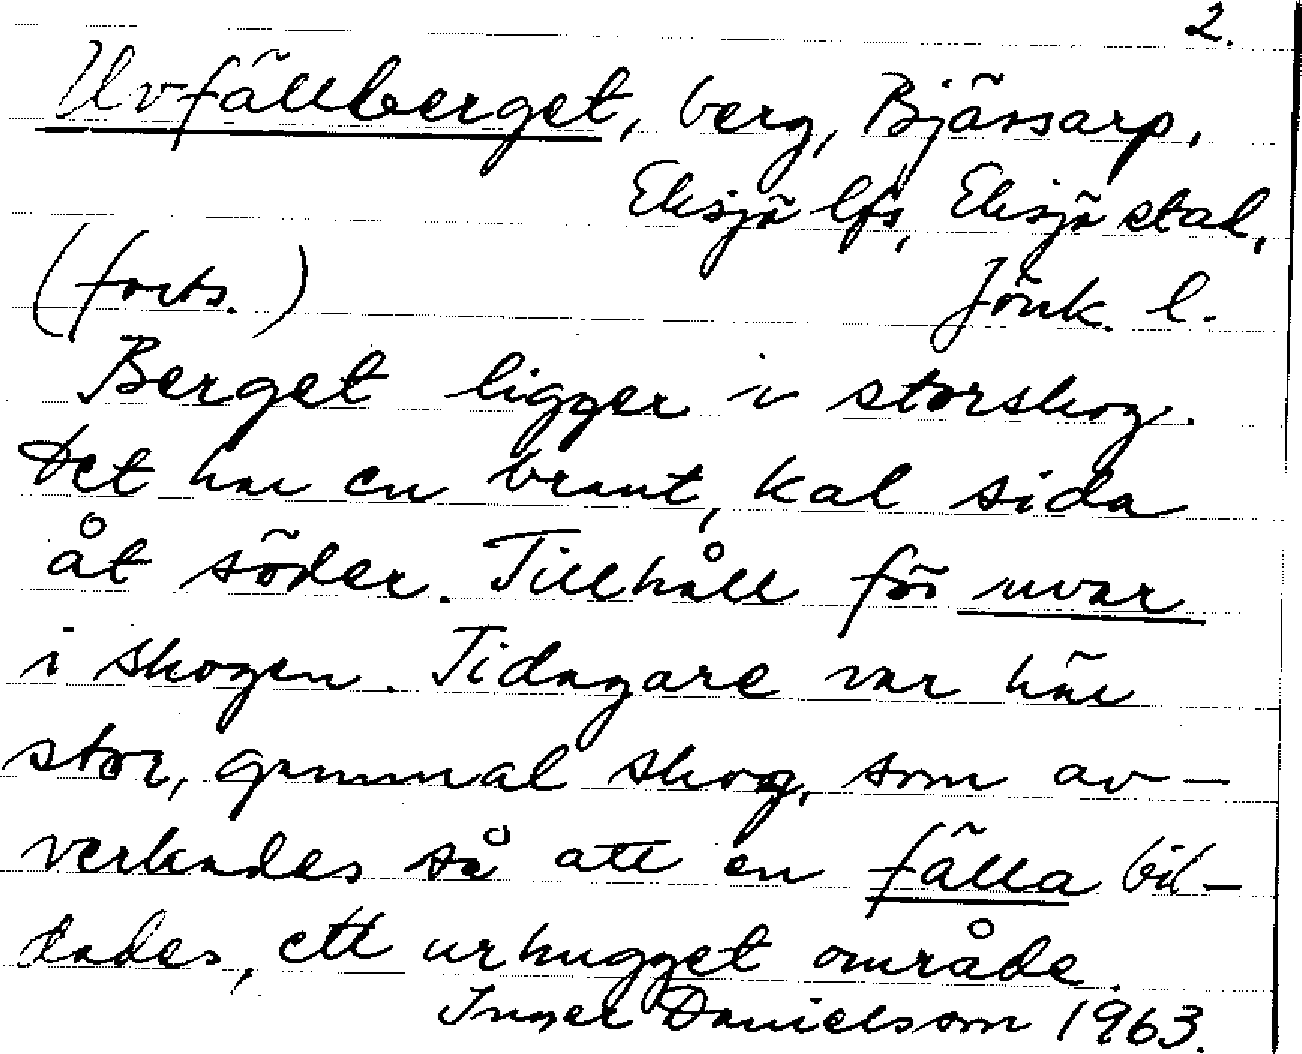 2.
Uvfällberget, berg, Bjässarp,
Eksjö lfs, Eksjö stad,
(forts.) Jönk. l.
Berget ligger i storskog.
Det har en brant, kal sida
åt söder. Tillhåll för uvar
i skogen. Tidagare var här
stor, gammal skog, som av-
verkades så att en fälla bil-
dades, ett urhugget område.
Inger Danielsson 1963.